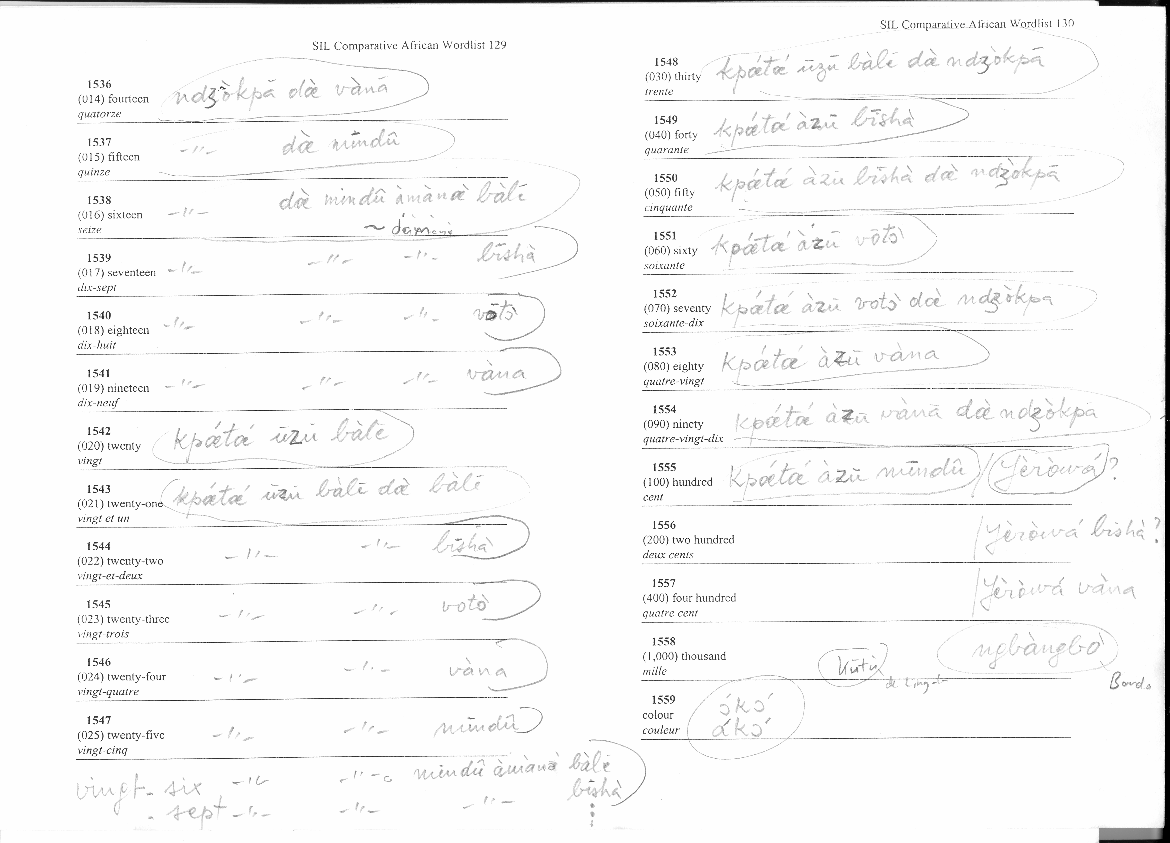 SIL Comparative African Wordlist 129
1536
(014) fourteen ndʒòkpā dæ̀ vànā
quatorze
1537
(015) fifteen -"- dæ̀ mīndû
quinze
1538
(016) sixteen -"- dæ̀ mindû àmànæ̀ bàlē
seize ~
1539
(017) seventeen -"- -"- -"- bīshà
dix-sept
1540
(018) eighteen -"- -"- -"- vōtɔ̀
dix-huit
1541
(019) nineteen -"- -"- -"- vàna
dix-neuf
1542
(020) twenty kpǽtǽ ūzū bàlē
vingt
1543
(021) twenty-one kpǽtǽ ūzū bàlē dæ̀ bàlē
vingt et un
1544
(022) twenty-two -"- -"- bīshà
vingt-et-deux
1545
(023) twenty-three -"- -"- votɔ̀
vingt-trois
1546
(024) twenty-four -"- -"- vàna
vingt-quatre
1547
(025) twenty-five -"- -"- mīndû
vingt-cinq
vingt-six -"- -"- mindû àmànæ̀ bàlē
- sept -"- -"- -"- bīshà
SIL Comparative African Wordlist 130
1548
(030) thirty kpǽtǽ ūzū bàlē dæ̀ ndʒòkpā
trente
1549
(040) forty kpǽtǽ àzū bīshà
quarante
1550
(050) fifty kpǽtǽ àzū bīshà dæ̀ ndʒòkpā
cinquante
1551
(060) sixty kpǽtǽ àzū vōtɔ̀
soixante
1552
(070) seventy kpǽtǽ àzū votɔ̀ dæ̀ ndʒòkpā
soixante-dix
1553
(080) eighty kpǽtǽ àzū vàna
quatre-vingt
1554
(090) ninety kpǽtǽ àzū vànā dæ̀ ndʒòkpā
quatre-vingt-dix
1555
(100) hundred kpǽtǽ àzū mīndû / yèròwá?
cent
1556
(200) two hundred / yèròwá bīshà?
deux cents
1557
(400) four hundred / yèròwá vàna
quatre cent
1558
(1,000) thousand kútù ngbàngbò
mille
1559
colour ɔ́kɔ́
couleur ákɔ́